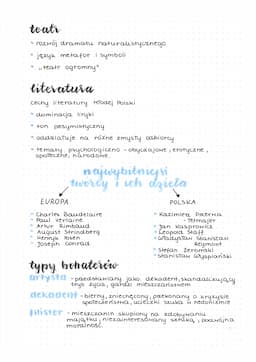 teatr
rozwój dramatu naturalistycznego
język metafor i symboli
„teatr ogromny"
literatura
cechy literatury Młodej Polski
dominacja liryki
ton pesymistyczny
oddziałuje na różne zmysły odbiorcy
tematy: psychologiczno - obyczajowe, erotyczne,
społeczne, narodowe
najwybitniejsi
twórcy i ich dzieła
EUROPA
POLSKA
Charles Baudelaire
Paul Verlaine
Artur Rimbaud
August Strindberg
Henryk Ibsen
Joseph Conrad
Kazimierz Przerwa
-Tetmajer
Jan Kasprowicz
Leopold Staff
Władysław Stanisław
Reymont
Stefan Żeromski
Stanisław Wyspiański
typy bohaterów
artysta - przedstawiany jako dekadent, skandalizujący
tryb życia, gardzi mieszczaństwem
dekadent - bierny, zniechęcony, przekonany o kryzysie
społeczeństwa, ucieczki szuka w nałogach
filister - mieszczanin skupiony na zdobywaniu
majątku, niezainteresowany sztuką, podwójna
moralność